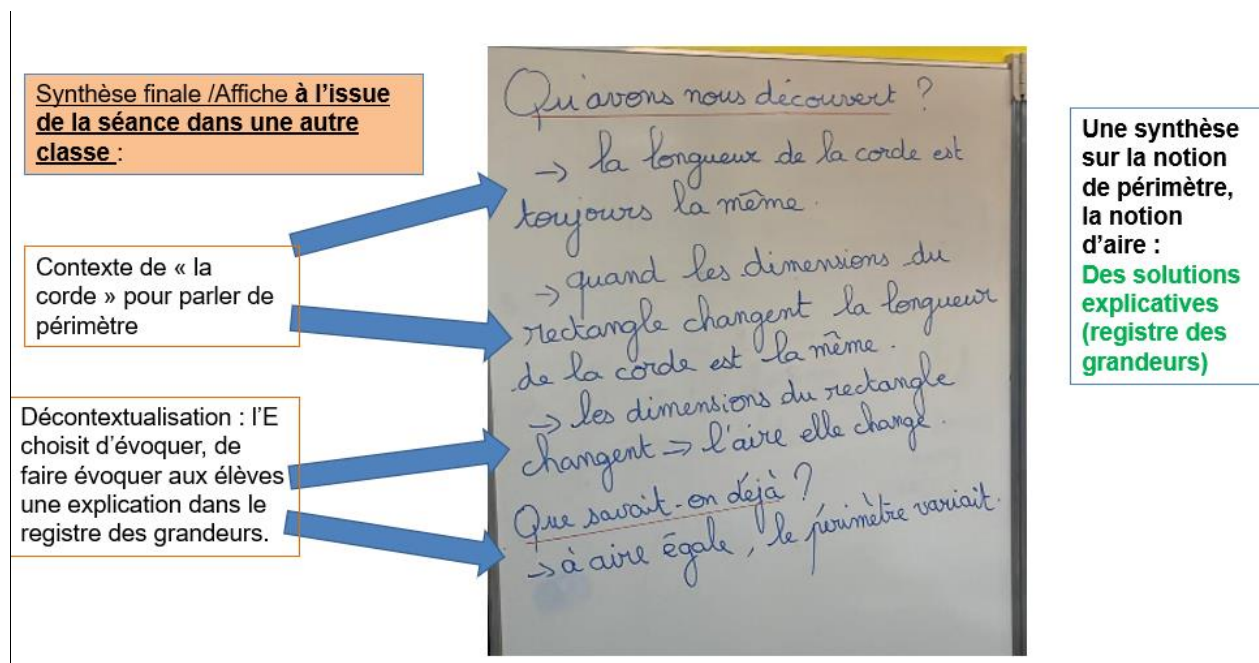 Synthèse finale /Affiche à l'issue
de la séance dans une autre
classe :
Contexte de « la
corde » pour parler de
périmètre
Décontextualisation : l'E
choisit d'évoquer, de
faire évoquer aux élèves
une explication dans le
registre des grandeurs.
Qu'avons nous découvert ?
→ la longueur de la corde est
toujours la même.
→ quand les dimensions du
rectangle changent la longueur
de la corde est la même.
→ les dimensions du rectangle
changent → l'aire elle change.
Que savait-on déjà ?
→ à aire égale, le périmètre variait.
Une synthèse
sur la notion
de périmètre,
la notion
d'aire :
Des solutions
explicatives
(registre des
grandeurs)